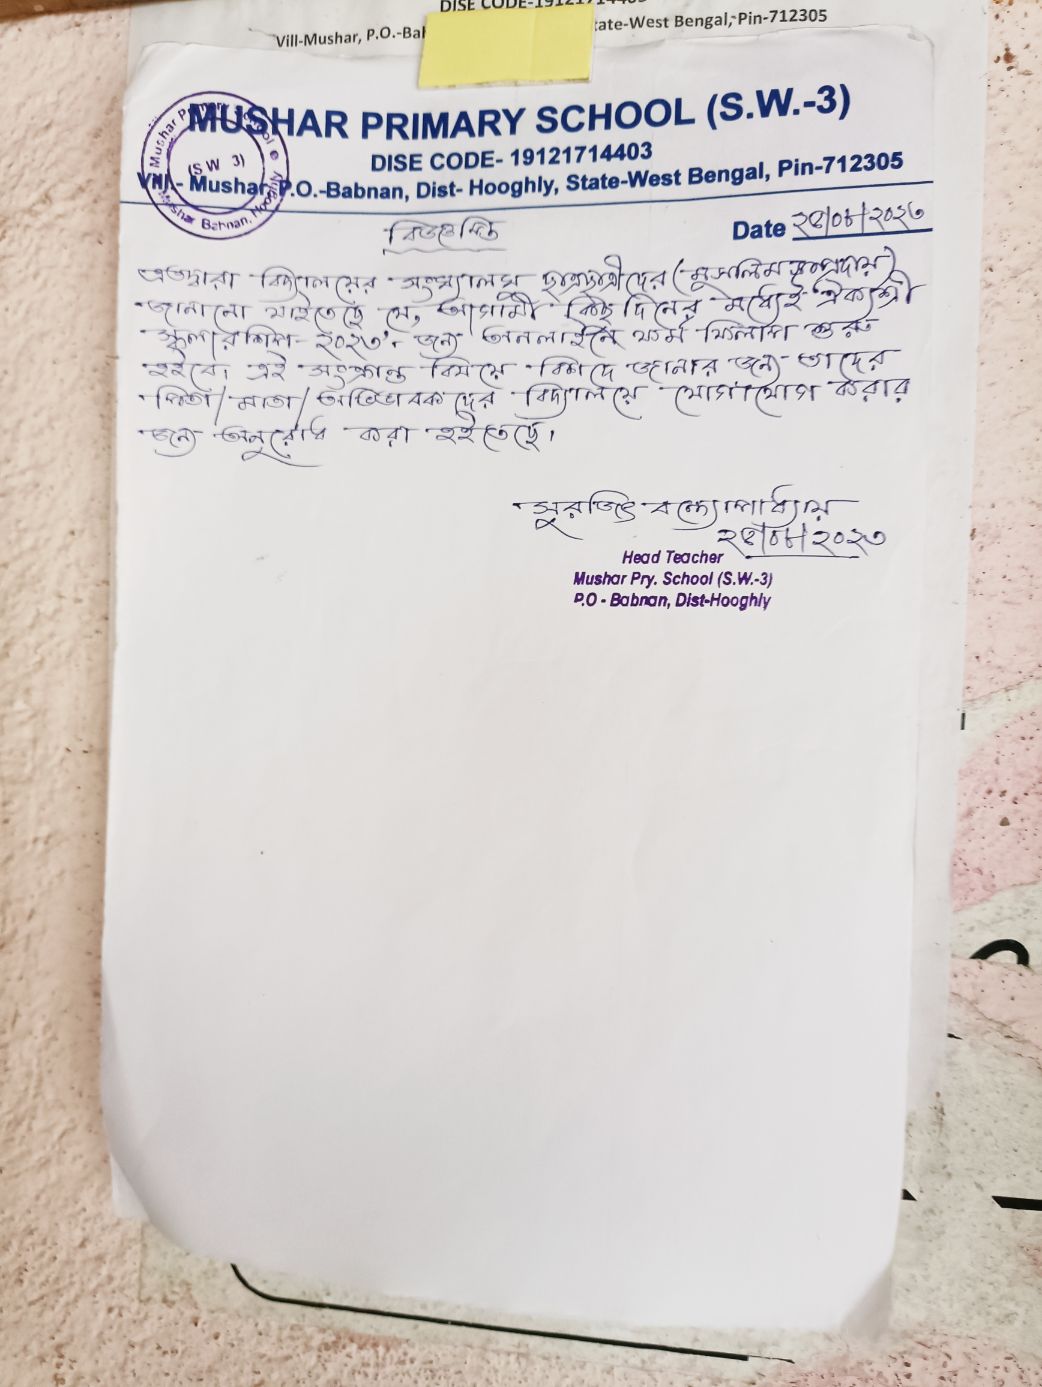 DISE CODE-19121714403
Vill-Mushar, P.O.-Bab ate-West Bengal, Pin-712305
MUSHAR PRIMARY SCHOOL (S.W.-3)
DISE CODE- 19121714403
Vill.- Mushar, P.O.-Babnan, Dist- Hooghly, State-West Bengal, Pin-712305
Mushar Primary School
(S W 3)
Mushar Babnan, Hooghly
Date ২৪/০৮/২০২৩
বিজ্ঞপ্তি
এতদ্বারা বিদ্যালয়ের সংখ্যালঘু ছাত্রছাত্রীদের (মুসলিম সম্প্রদায়)
জানানো যাইতেছে যে, আগামী কিছু দিনের মধ্যেই ঐক্যশ্রী
স্কলারশিপ- ২০২৩'র জন্য অনলাইনে ফর্ম ফিলাপ শুরু
হইবে। এই সংক্রান্ত বিষয়ে বিশদে জানার জন্য তাদের
পিতা/মাতা/অভিভাবকদের বিদ্যালয়ে যোগাযোগ করার
জন্য অনুরোধ করা হইতেছে।
সুরজিৎ বন্দ্যোপাধ্যায়
২৪/০৮/২০২৩
Head Teacher
Mushar Pry. School (S.W.-3)
P.O - Babnan, Dist-Hooghly